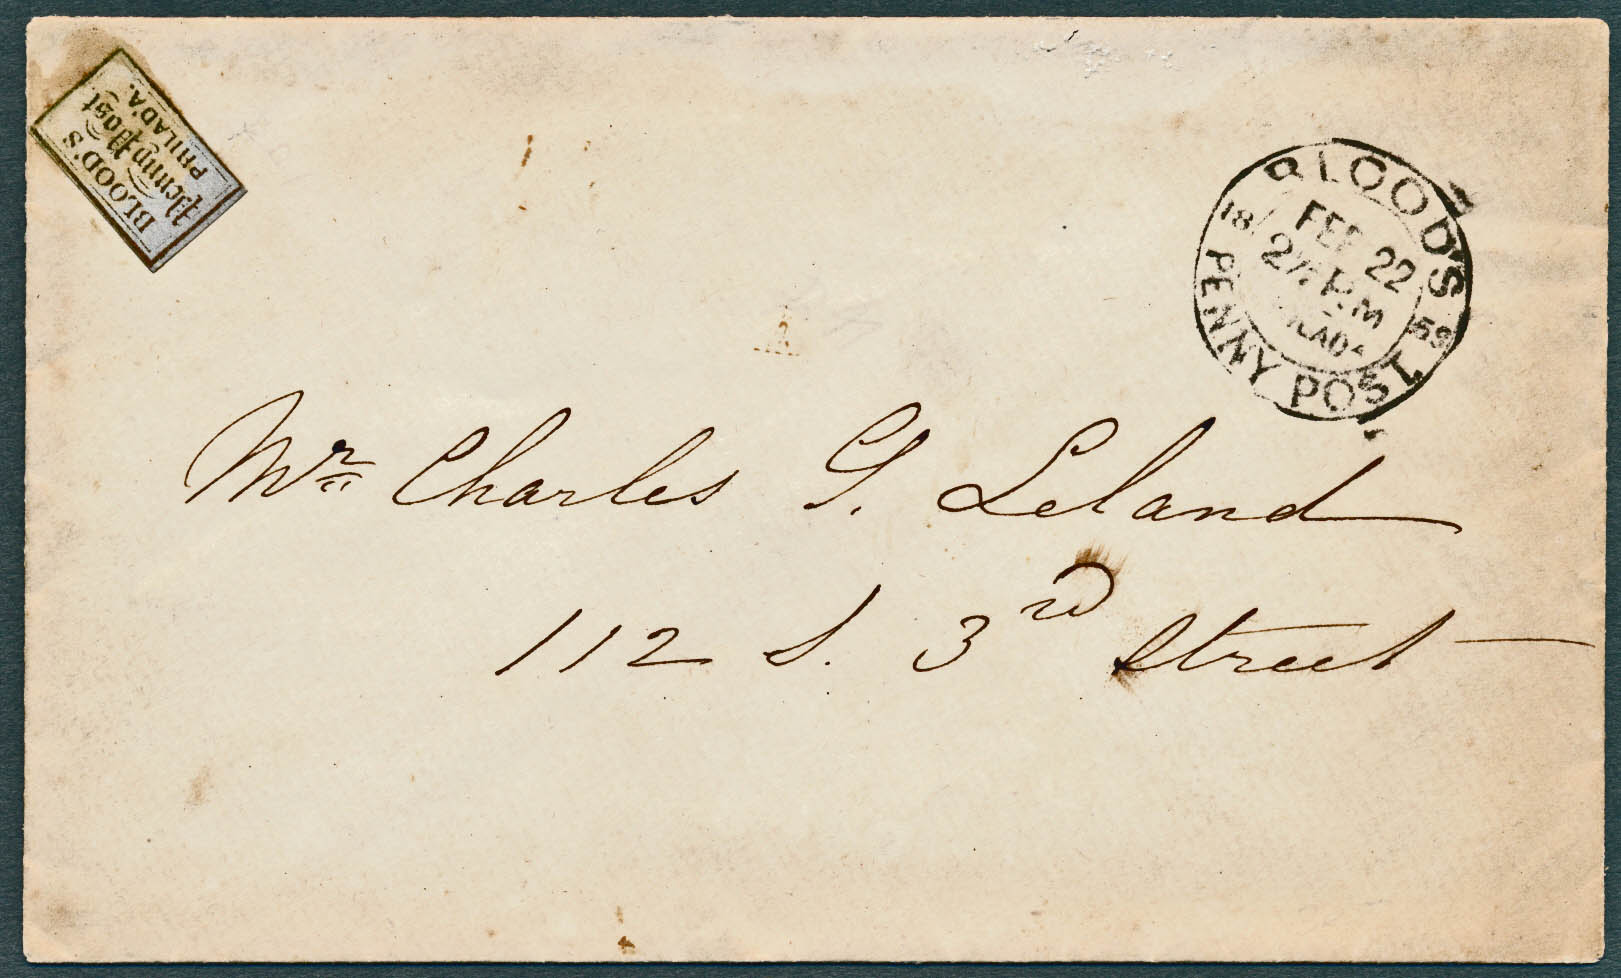 BLOOD'S
Penny Post
PHILAD'A.
BLOOD'S
18 59
FEB 22
PM
PHILADA
PENNY POST
Mr. Charles G. Leland
112 S. 3rd Street